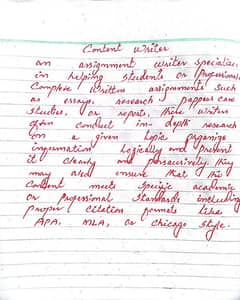 Content writer
an assignment writer specialize
in helping students or professional
Complete written assignments such
as essays, research pappers case
studies, or reports, these writers
often conduct in-depth research
on a given topic organize
information logically and present
it clearly and persuasively. they
may also ensure that the
Content meets specific academic
or professional standards including
proper citation formats like
APA, MLA, or chicago style.